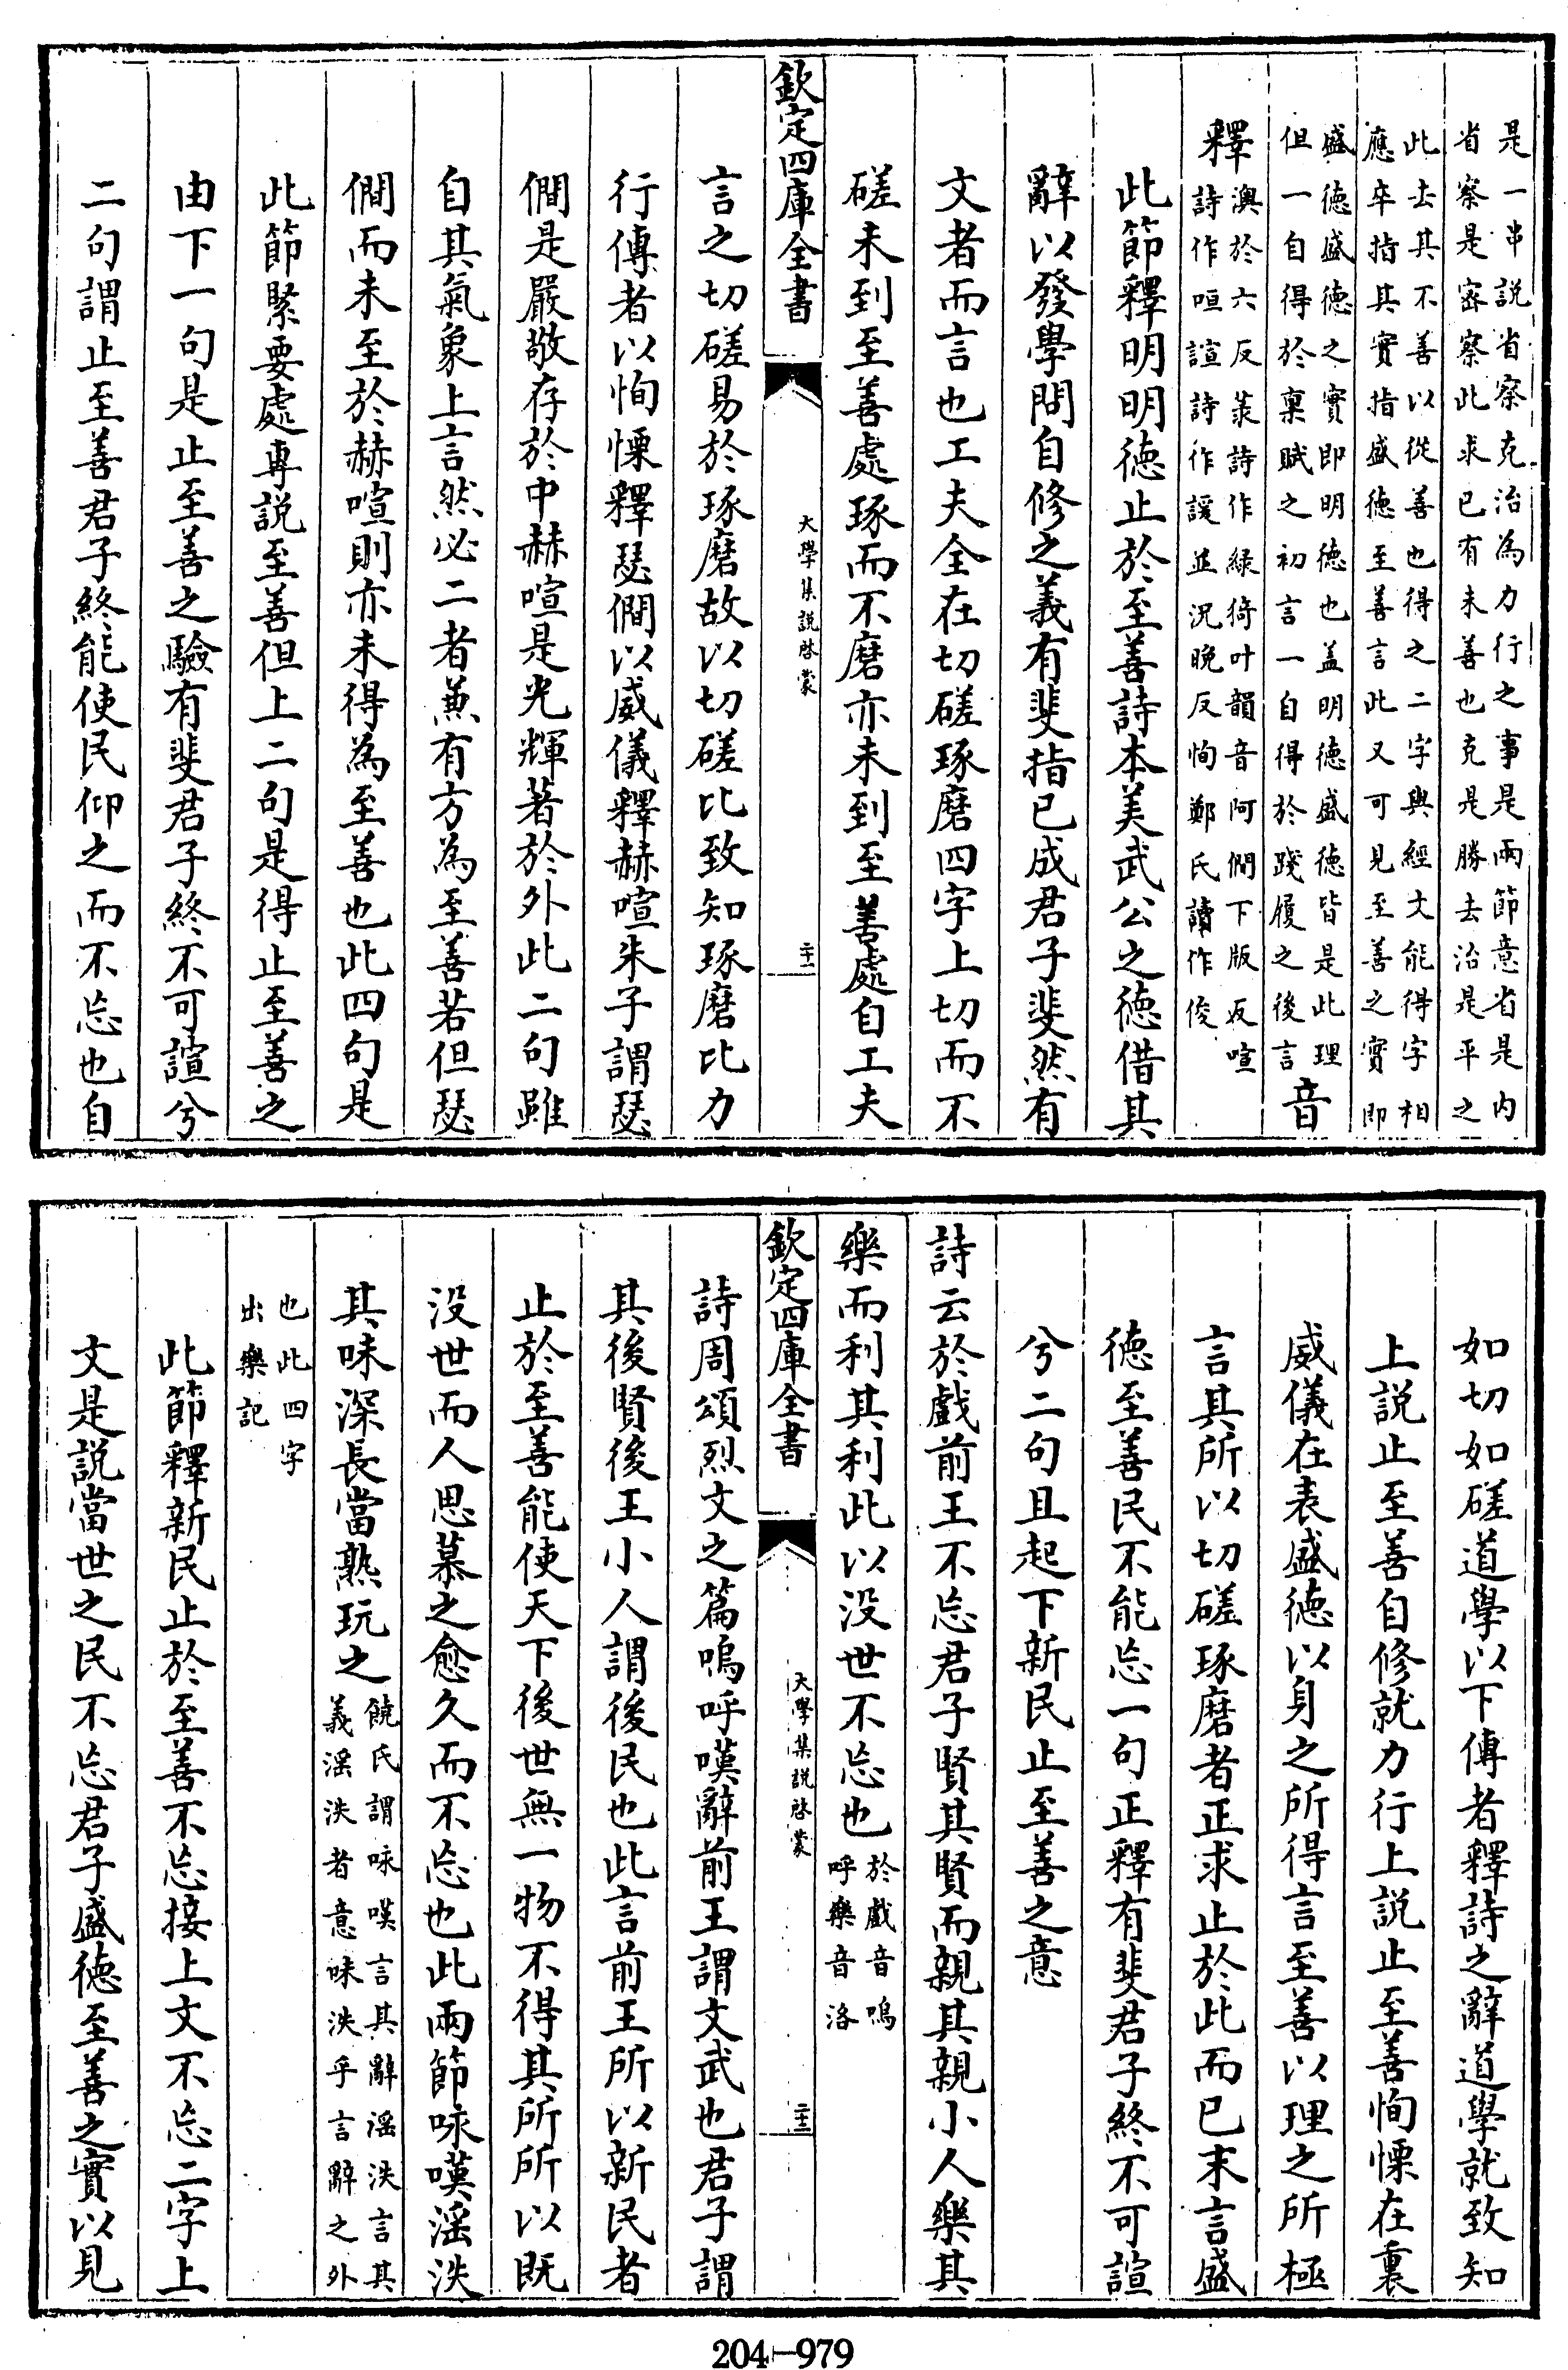 是一串説省察克治為力行之事是兩節意省是内
省察是宻察此求已有未善也克是勝去治是平之
此去其不善以從善也得之二字與經文能得字相
應卒指其實指盛徳至善言此又可見至善之實即
盛徳盛徳之實即明徳也盖明徳盛徳皆是此理
但一自得於稟賦之初言一自得於踐履之後言音
釋澳於六反菉詩作緑猗叶韻音阿僩下版反喧
詩作咺諠詩作諼並況晚反恂鄭氏讀作俊
此節釋明明徳止於至善詩本美武公之徳借其
辭以發學問自修之義有斐指已成君子斐然有
文者而言也工夫全在切磋琢磨四字上切而不
磋未到至善處琢而不磨亦未到至善處自工夫
欽定四庫全書
大學集説啓蒙
二十一
言之切磋易於琢磨故以切磋比致知琢磨比力
行傳者以恂慄釋瑟僩以威儀釋赫喧朱子謂瑟
僩是嚴敬存於中赫喧是光輝著於外此二句雖
自其氣象上言然必二者兼有方為至善若但瑟
僩而未至於赫喧則亦未得為至善也此四句是
此節緊要處專説至善但上二句是得止至善之
由下一句是止至善之驗有斐君子終不可諠兮
二句謂止至善君子終能使民仰之而不忘也自
如切如磋道學以下傳者釋詩之辭道學就致知
上説止至善自修就力行上説止至善恂慄在裏
威儀在表盛徳以身之所得言至善以理之所極
言其所以切磋琢磨者正求止於此而已末言盛
徳至善民不能忘一句正釋有斐君子終不可諠
兮二句且起下新民止至善之意
詩云於戲前王不忘君子賢其賢而親其親小人樂其
樂而利其利此以没世不忘也於戲音嗚
呼樂音洛
欽定四庫全書
大學集説啓蒙
二十二
詩周頌烈文之篇嗚呼嘆辭前王謂文武也君子謂
其後賢後王小人謂後民也此言前王所以新民者
止於至善能使天下後世無一物不得其所所以既
没世而人思慕之愈久而不忘也此兩節咏嘆滛泆
其味深長當熟玩之饒氏謂咏嘆言其辭滛泆言其
義滛泆者意味泆乎言辭之外
也此四字
出樂記
此節釋新民止於至善不忘接上文不忘二字上
文是説當世之民不忘君子盛徳至善之實以見
204-979